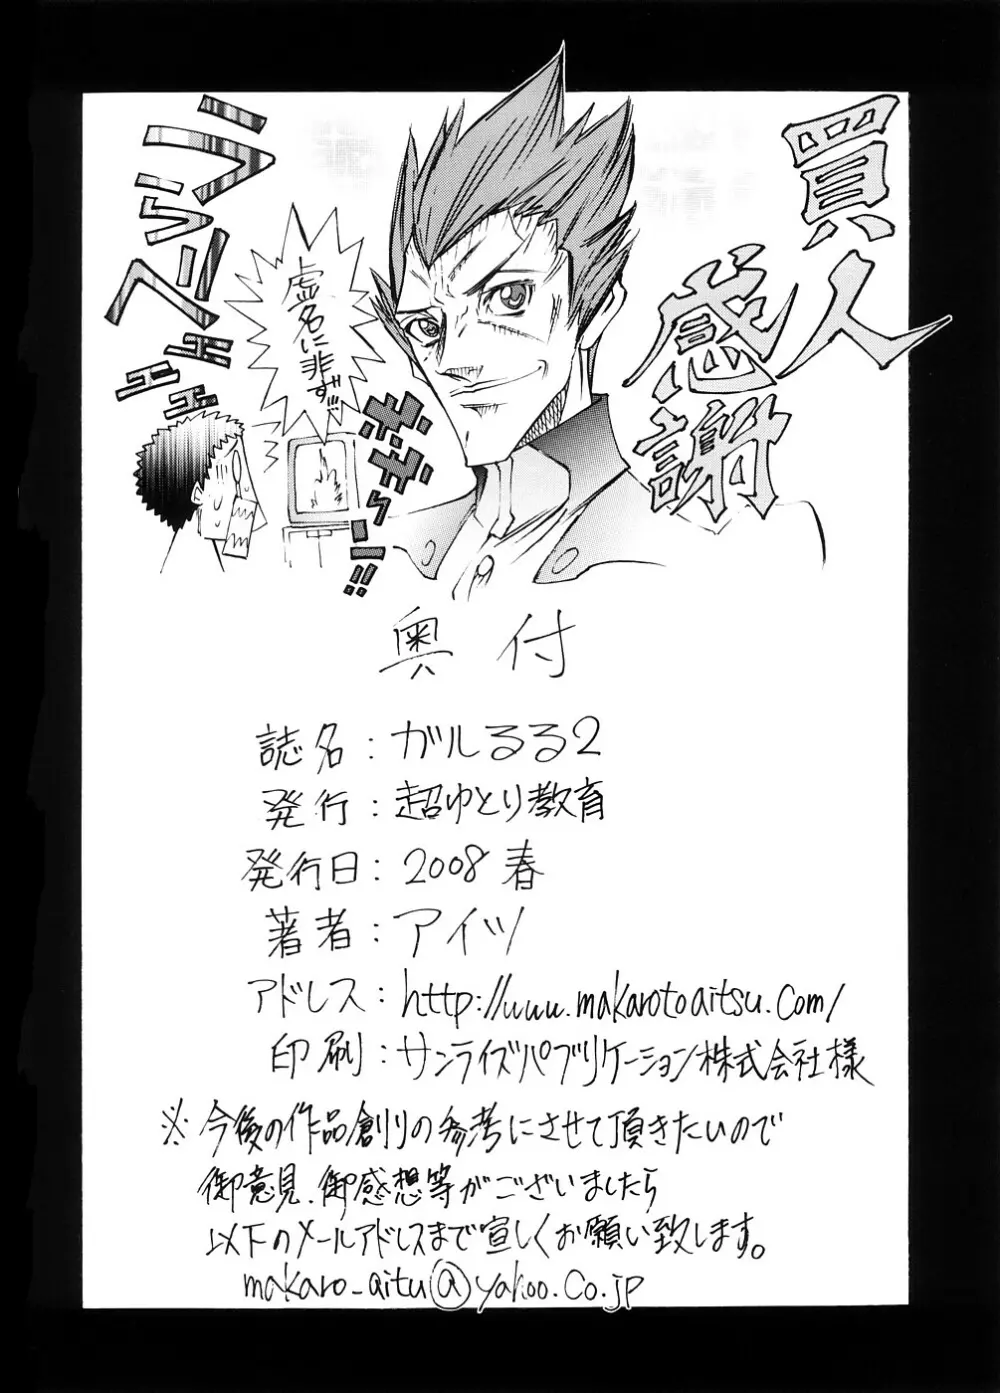 買人
感謝
虚名に非ず…
ラらべ
ェェェェ
ギンデレーン!!!
奥付
誌名：ガルるる2
発行：超ゆとり教育
発行日：2008春
著者：アイツ
アドレス：http://www.makarotoaitsu.com/
印刷：サンライズパブリケーション株式会社様
※今後の作品創りの参考にさせて頂きたいので
御意見、御感想等がございましたら
以下のメールアドレスまで宜しくお願い致します。
makaro_aitu@yahoo.co.jp